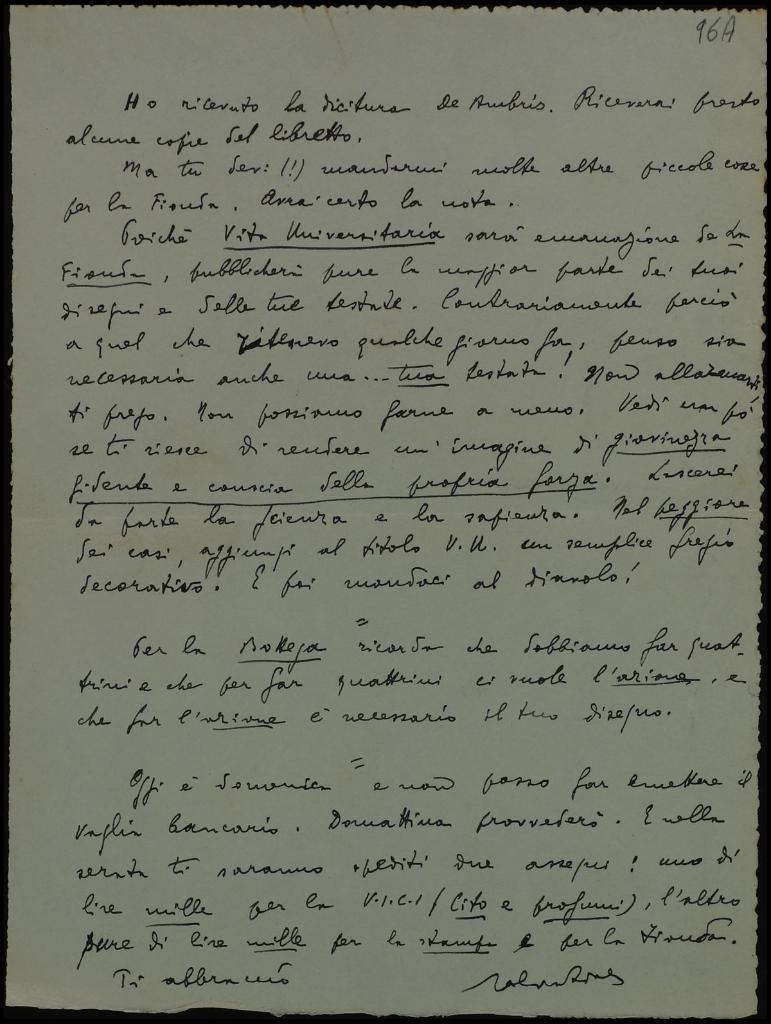 96A
Ho ricevuto la dicitura De Ambris. Riceverai presto
alcune copie del libretto.
Ma tu devi (!) mandarmi molte altre piccole cose
per la Fionda. Avrai certo la nota.
Poichè Vita Universitaria sarà emanazione de La
Fionda, pubblicherà pure la maggior parte dei tuoi
disegni e delle tue testate. Contrariamente perciò
a quel che ritenevo qualche giorno fa, penso sia
necessaria anche una... tua testata! Non allarmarti
ti prego. Non possiamo farne a meno. Vedi un pò
se ti riesce di rendere un'imagine di giovinezza
fidente e conscia della propria forza. Lascerei
da parte la scienza e la sapienza. Nel peggiore
dei casi, aggiungi al titolo V.U. un semplice fregio
decorativo. E poi mandaci al diavolo!
=
Per la Bottega ricorda che dobbiamo far quat-
trini e che per far quattrini ci vuole l'azione, e
che per l'azione è necessario il tuo disegno.
=
Oggi è domenica e non posso far emettere il
vaglia bancario. Domattina provvederò. E nella
serata ti saranno spediti due assegni: uno di
lire mille per la V.I.C.I (Cito e profumi), l'altro
pure di lire mille per la stampa e per la Fionda.
Ti abbraccio